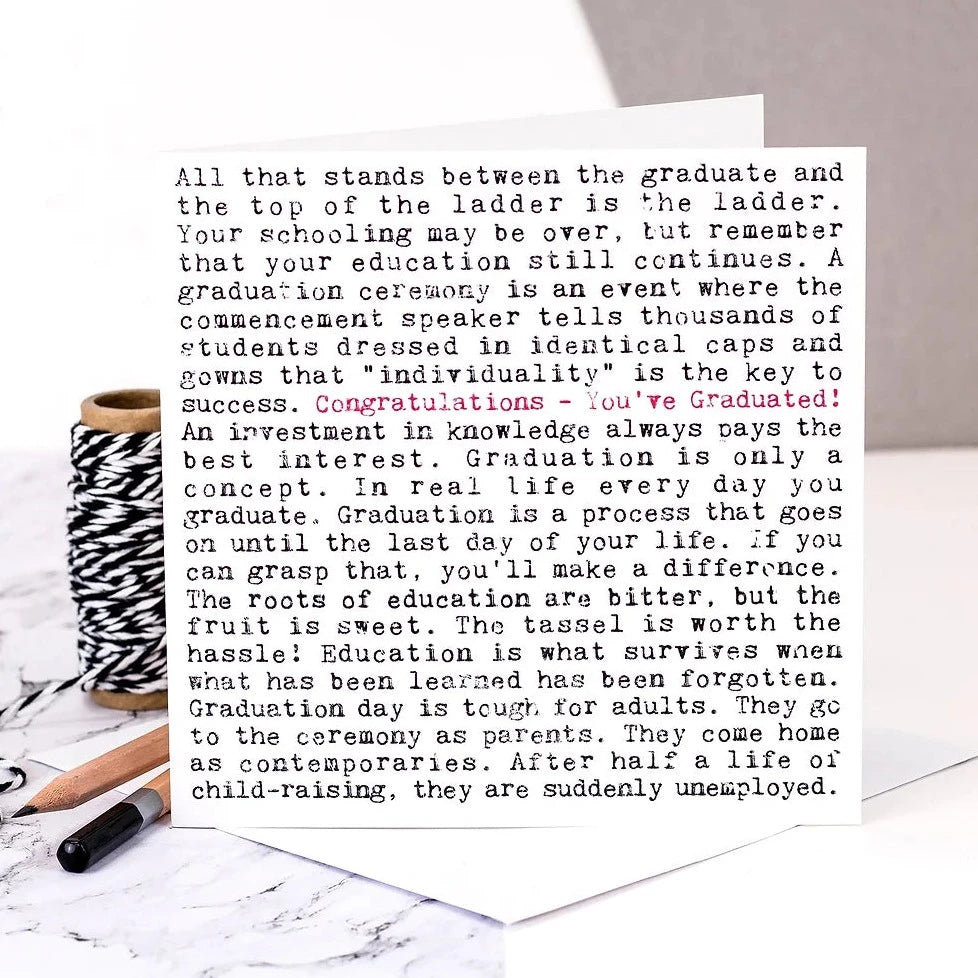 All that stands between the graduate and
the top of the ladder is the ladder.
Your schooling may be over, but remember
that your education still continues. A
graduation ceremony is an event where the
commencement speaker tells thousands of
students dressed in identical caps and
gowns that "individuality" is the key to
success. Congratulations - You've Graduated!
An investment in knowledge always pays the
best interest. Graduation is only a
concept. In real life every day you
graduate. Graduation is a process that goes
on until the last day of your life. If you
can grasp that, you'll make a difference.
The roots of education are bitter, but the
fruit is sweet. The tassel is worth the
hassle! Education is what survives when
what has been learned has been forgotten.
Graduation day is tough for adults. They go
to the ceremony as parents. They come home
as contemporaries. After half a life of
child-raising, they are suddenly unemployed.